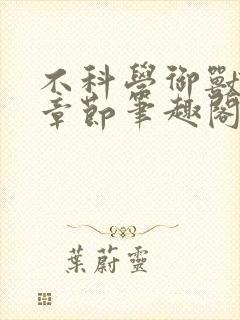 不科學御獸
章節筆趣閣
葉蔚靈